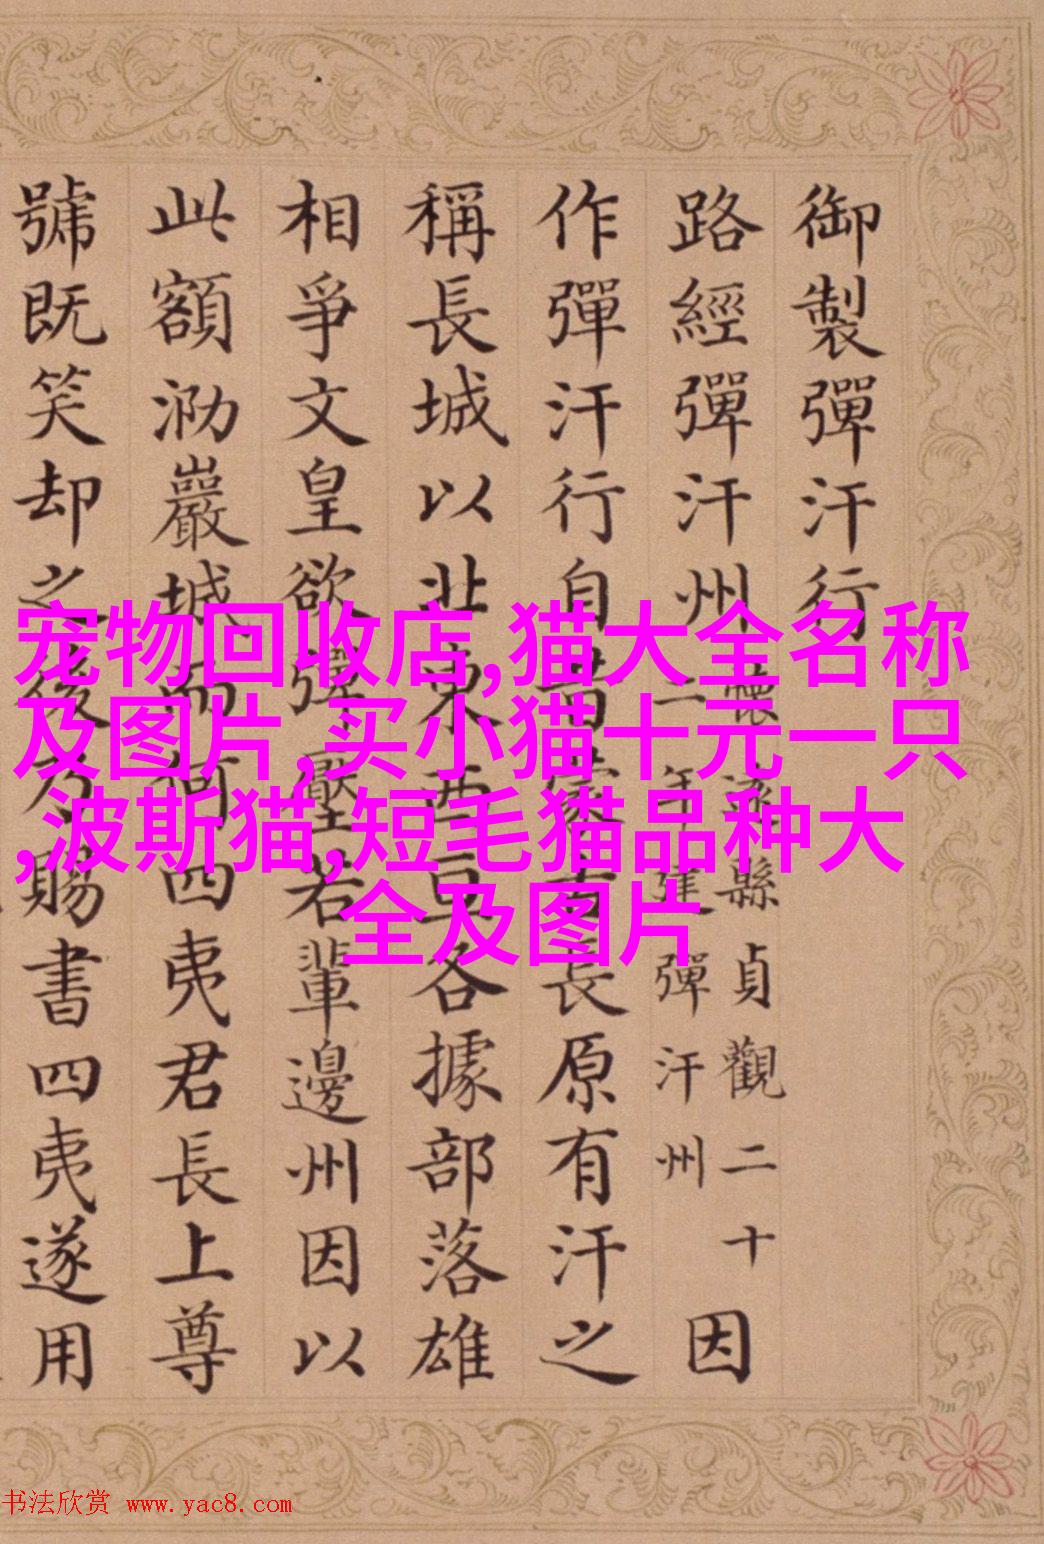 御製彈汗行
路經彈汗州
懷遠縣貞觀二十
二年建彈汗州
因
作彈汗行自昔蒙古長原有汗之
稱長城以北東西亘各據部落雄
相爭文皇欲彈壓若輩邊州因以
此額泐巖城而何四夷君長上尊
號既笑却之後乃賜書四夷遂用
宠物回收店,猫大全名称
及图片,买小猫十元一只
,波斯猫,短毛猫品种大
全及图片
书法欣赏 www.yac8.com